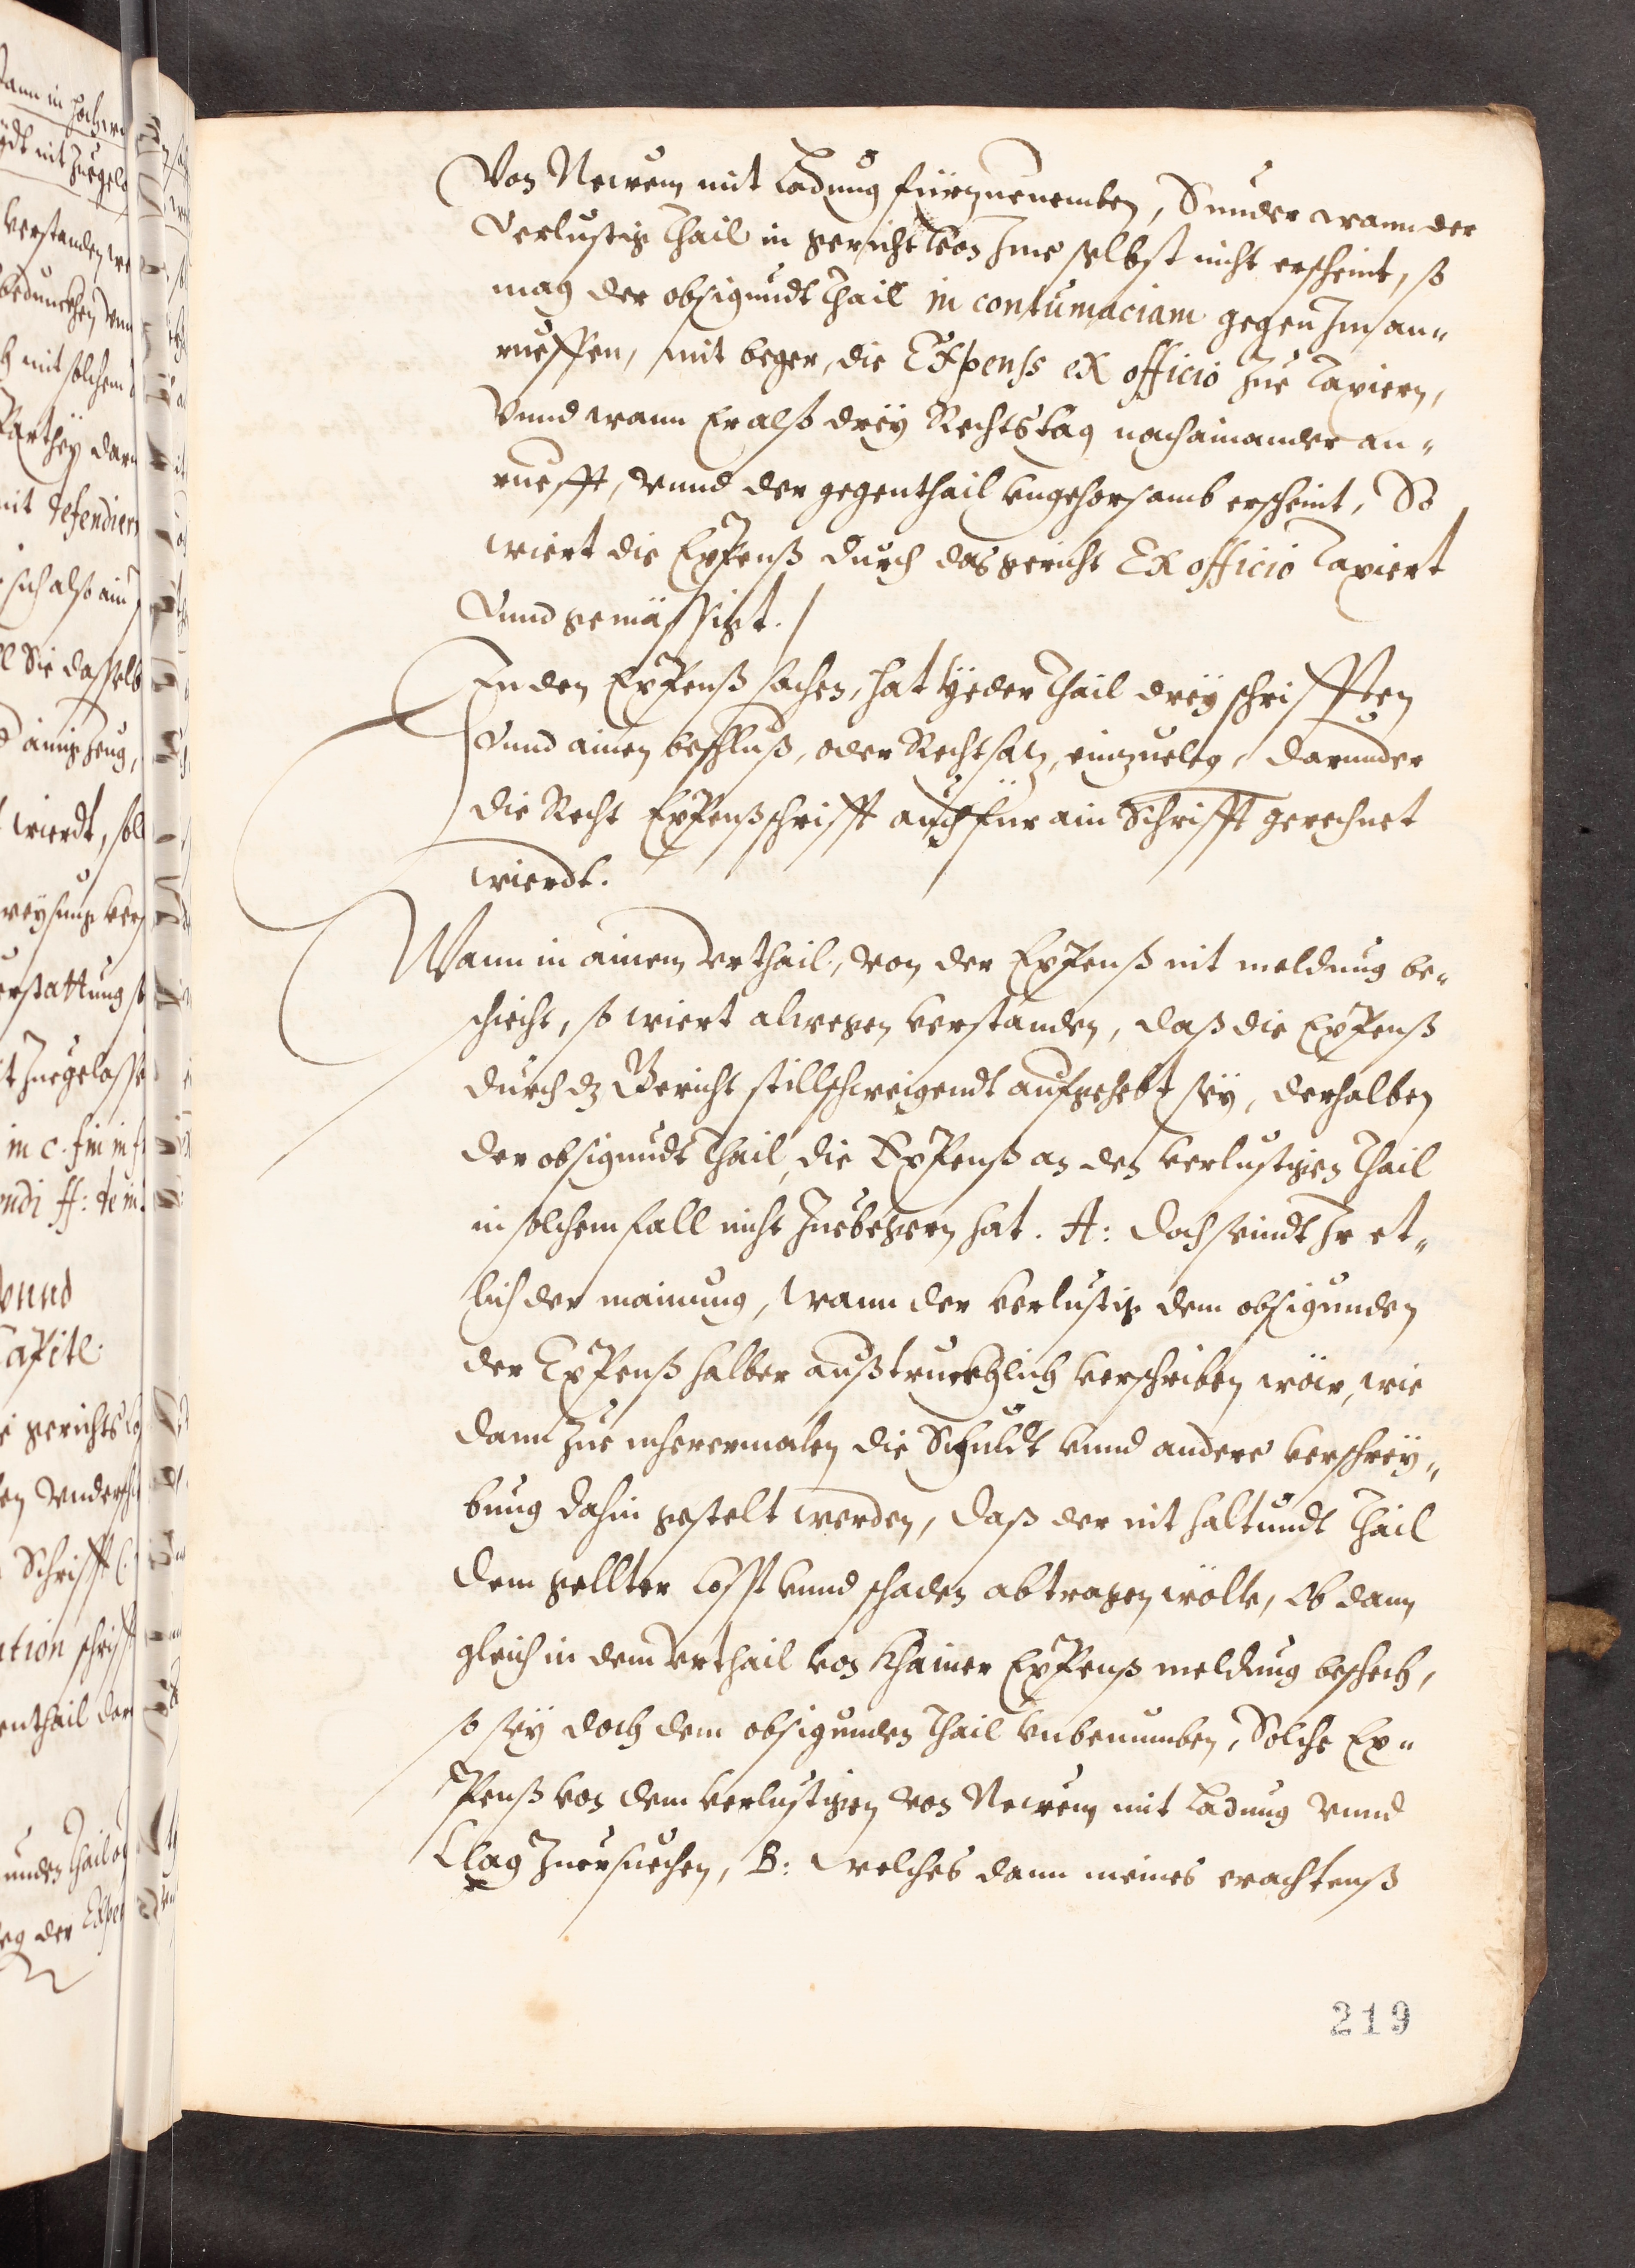 Von Newem mit Ladung fürzuenemben, Sunder wann der
Verlustig thail in gericht von Ime selbst nicht erscheint, so
mag der obsigundt thail in contumaciam gegen Im an„
rueffen, mit beger, die Expenss ex officio zue taxiern,
Vnnd wann Er alß dreÿ Rechtstag nacheinander an„
ruefft, vnnd der gegenthail vngehorsamb erscheint, So
wiert die Expenß durch das gericht Ex officio taxiert
Vnnd gemässigt.
In den Expenß sachen, hat Yeder thail dreÿ schrifften
Vnnd ainen beschluß, oder Rechtsatz, einzueleg, darunder
die Recht Expenßschrifft auch für ain Schrifft gerechnet
wierdt.
Wann in ainem Vrthail, von der Expenß nit meldung be„
schicht, so wiert alwegen verstanden, daß die Expenß
durch dz Gericht stillschweigendt aufgehebt seÿ, derhalben
der obsigundt thail, die Expenß an den verlustigen thail
in solchem fall nicht zuebegern hat. A: doch seindt Ir et„
lich der mainung, wann der verlustig dem obsigunden
der Expenß halber außtruckhlich verschriben wär, wie
dann zue mherermalen die Schuldt vnnd andere verschreÿ„
bung dahin gestelt werden, daß der nit haltundt thail
dem gellter Cosst vnnd schaden abtragen wölle, Ob dann
gleich in dem Vrthail von Khainer Expenß meldung beschech,
so seÿ doch dem obsigunden thail vnbenumben, Solche Ex„
penß von dem verlustigen von Newem mit Ladung vnnd
Clag zuersuechen, B: welches dann meines erachtenß
219